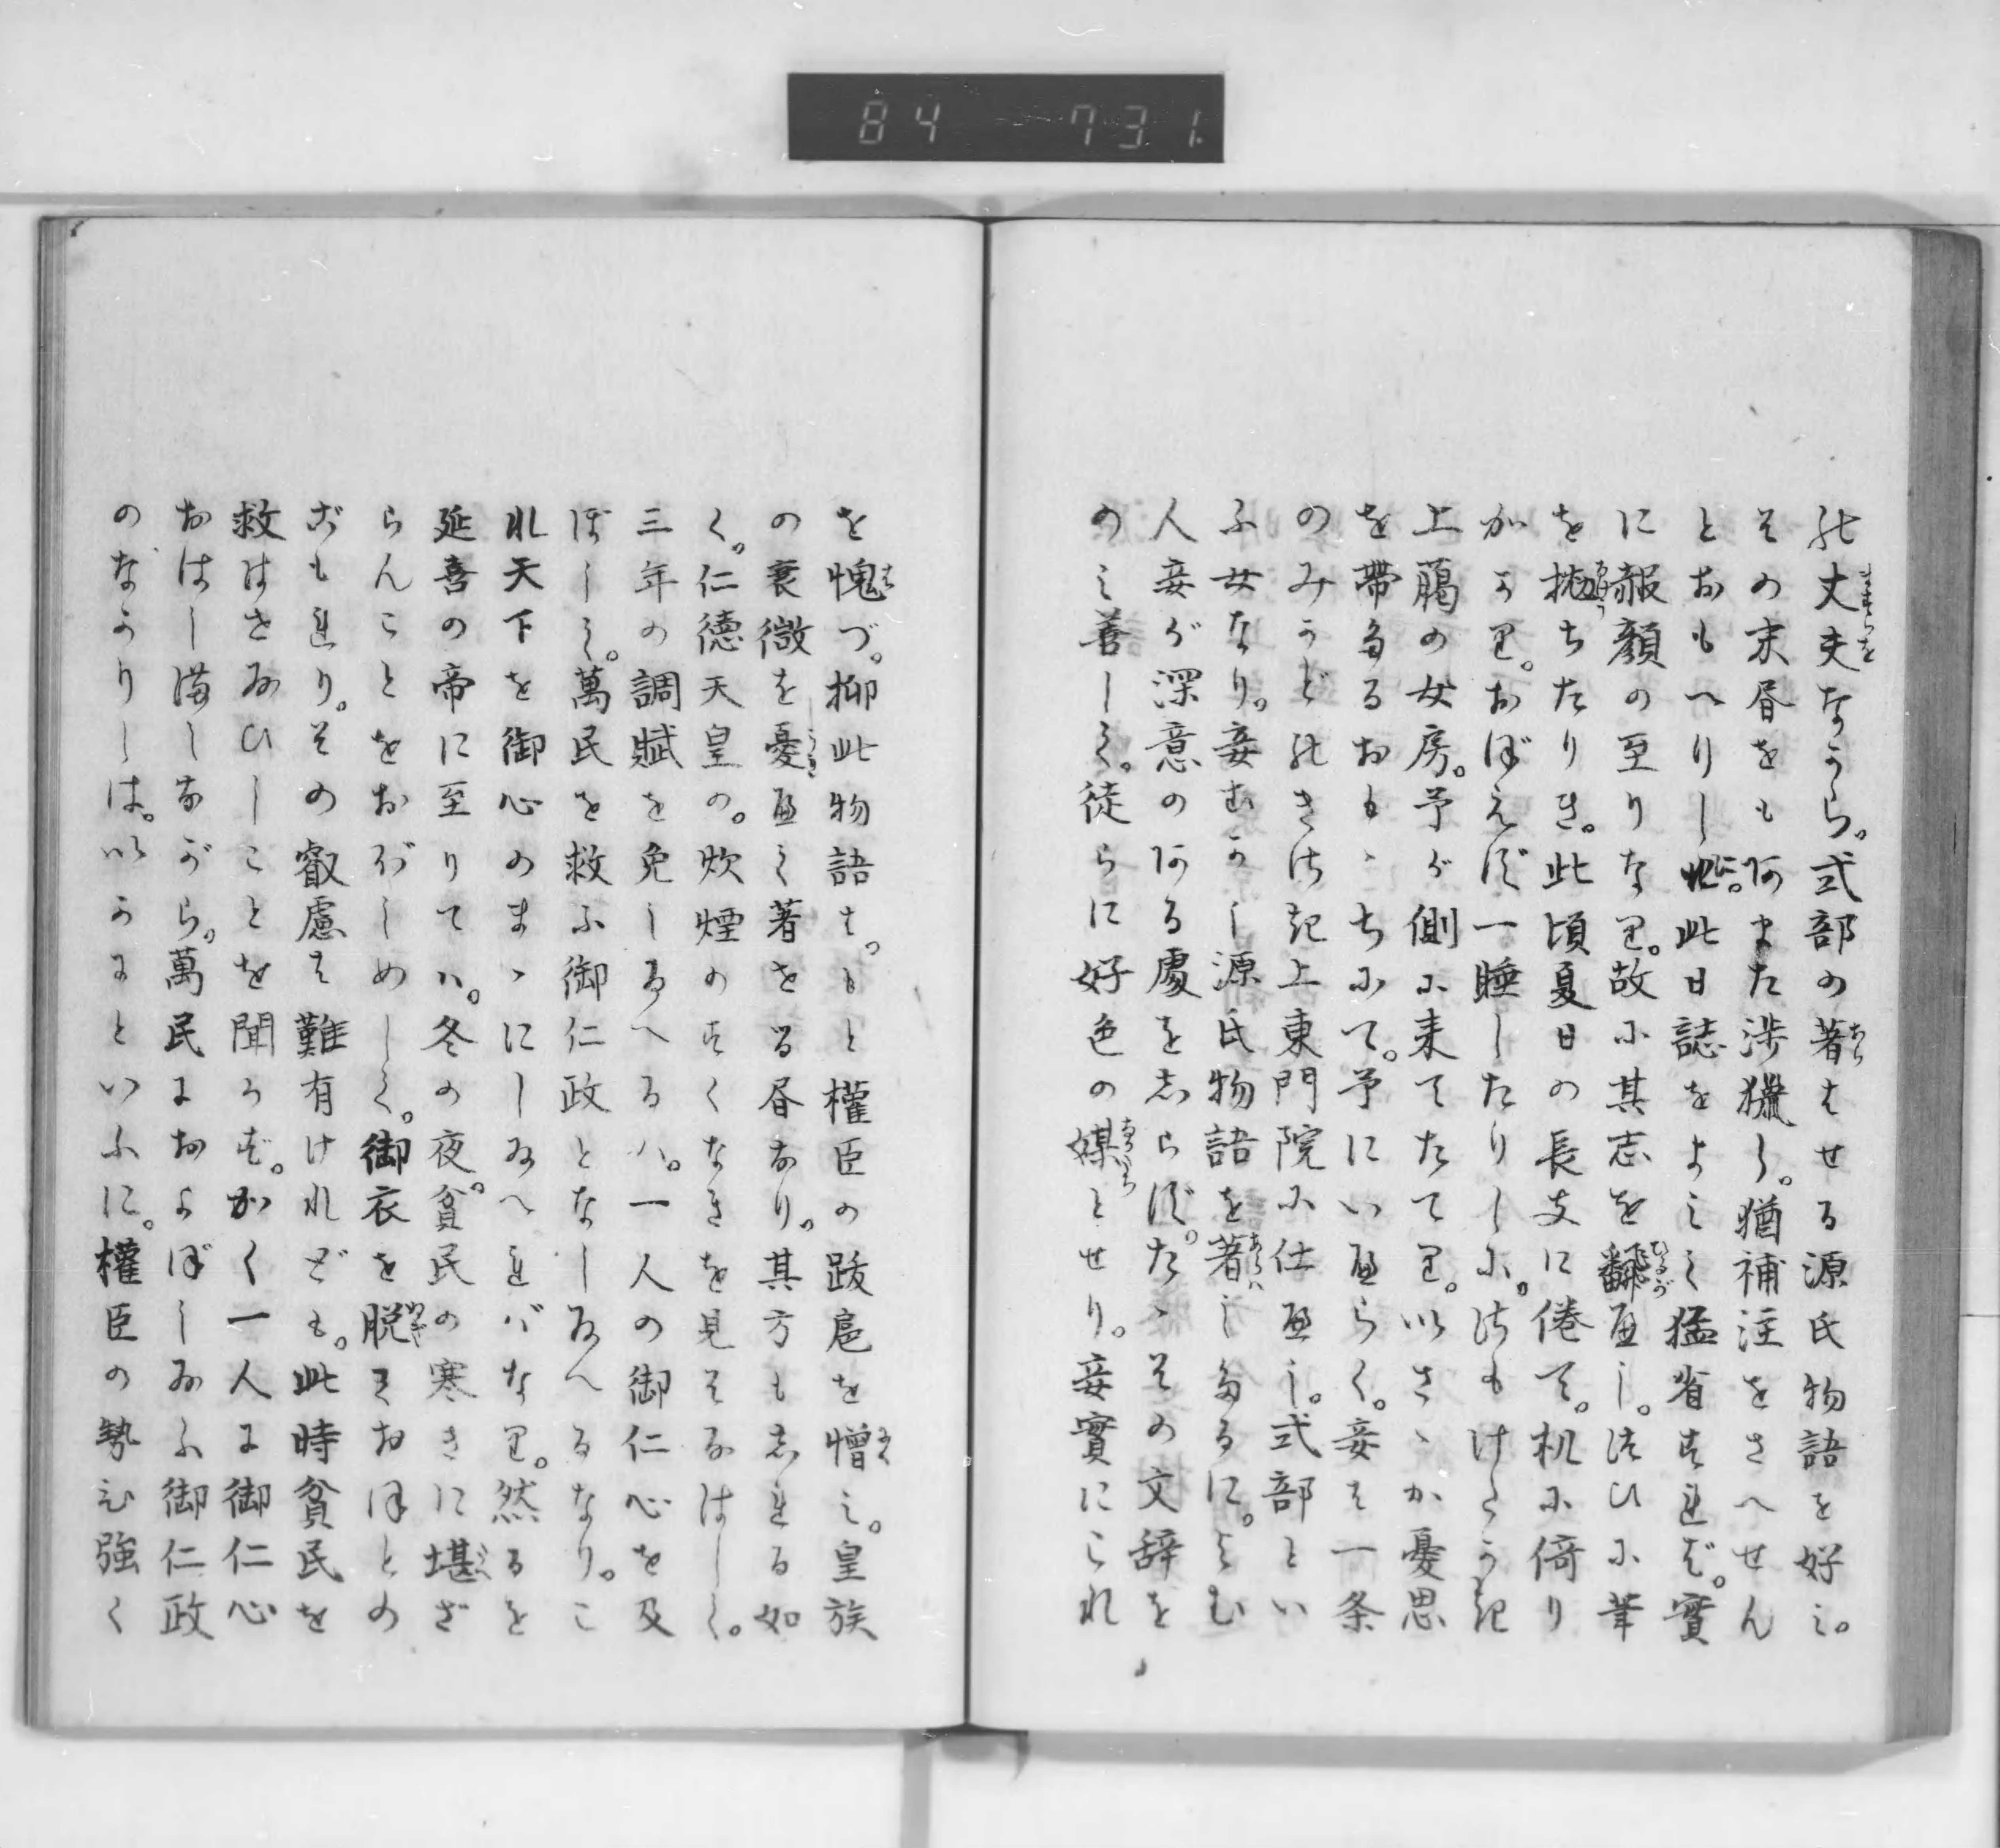 84 731
丈夫ながら。式部の著はせる源氏物語を好み。
その末書をもあまた渉獵し。猶補注をさへせん
とおもへりしに。此日誌をよみて猛省すれば。實
に赧顔の至りなり。故に其志を翻へし。つひに筆
を抛ちたりき。此頃夏日の長支に倦て。机に倚り
かゝり。おぼえず一睡したりしに。つもけたかき
上臈の女房。予が側に来てたてり。いさゝか憂思
を帶たるおももちにて。予にいへらく。妾は一条
のみかどのきさき上東門院に仕へし。式部とい
ふ女なり。妾むかし源氏物語を著したるに。よむ
人妾が深意のある處をしらず。たゝその文辞を
のみ善しみて。徒らに好色の媒とせり。妾實にこれ
を愧づ。抑此物語は。もと權臣の跋扈を憎み。皇族
の衰微を憂へて著せる書なり。其方もしれる如
く。仁徳天皇の。炊煙のすくなきを見そなはして。
三年の調賦を免したまへるハ。一人の御仁心を及
ぼして。萬民を救ふ御仁政となしたまへるなり。こ
れ天下を御心のまゝにしたまへればなり。然るを
延喜の帝に至りてハ。冬の夜。貧民の寒きに堪ざ
らんことをおぼしめして。御衣を脱ぎおほとの
ごもれり。その叡慮は難有けれども。此時貧民を
救はせたまひしことを聞かず。かく一人に御仁心
おはし満しながら。萬民におよぼしたまふ御仁政
のなかりしは。いかにといふに。權臣の勢ひ強く